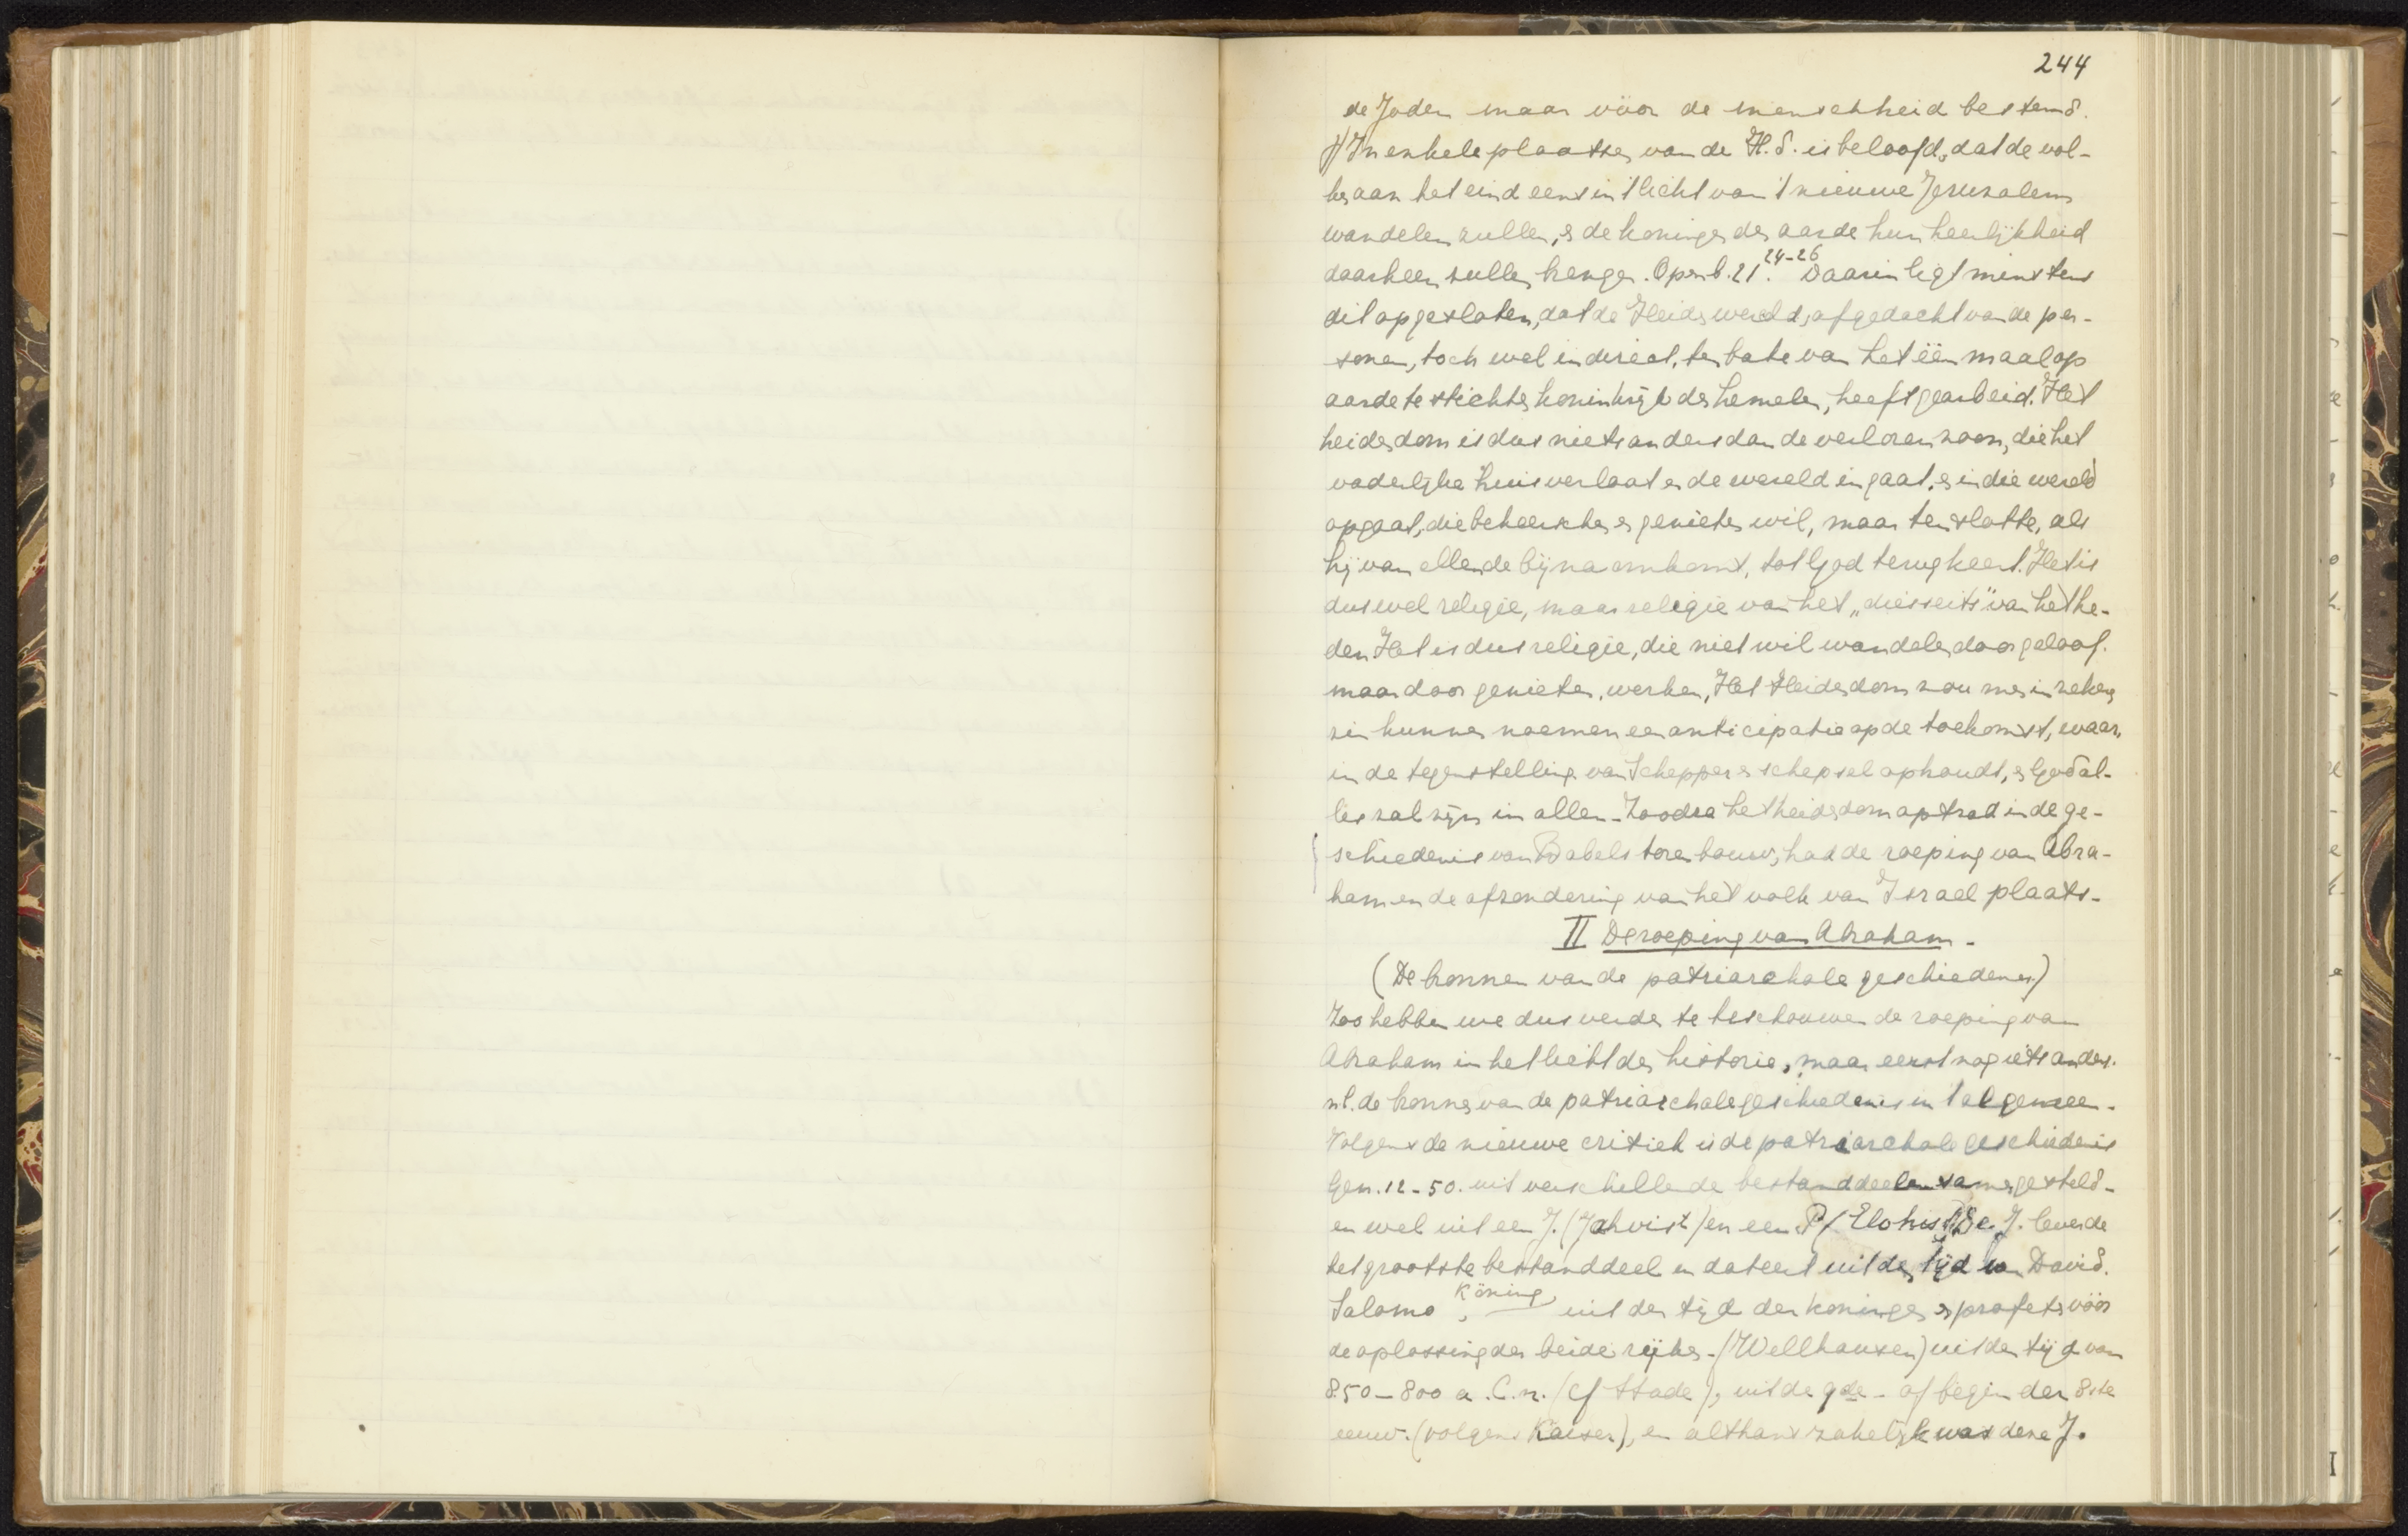 244
de Joden maar vóór de menschheid bestemd.
f) In enkele plaatsen van de H.S. is beloofd, dat de vol-
ken aan het eind eens in 't licht van 't nieuwe Jeruzalem
wandelen zullen, en de koningen der aarde hun heerlijkheid
daarheen zullen brengen. Openb. 21. 24-26 Daarin ligt minstens
dit opgesloten, dat de Heidenwereld, afgedacht van de per-
sonen, toch wel indirect, ten bate van het één maal op
aarde te stichten koninkrijk der hemelen, heeft gearbeid. Het
heidendom is dus niets anders dan de verloren zoon, die het
vaderlijke huis verlaat en de wereld ingaat, en in die wereld
opgaat, die beheerschen en genieten wil, maar ten slotte, als
hij van ellende bijna omkomt, tot God terugkeert. Het is
dus wel religie, maar religie van het „diesseits" van het he-
den Het is dus religie, die niet wil wandelen door geloof.
maar door genieten, werken, Het Heidendom zou men in zekeren
zin kunnen noemen een anticipatie op de toekomst, waar,
in de tegenstelling van Schepper en schepsel ophoudt, en God al-
les zal zijn in allen - Zoodra het heidendom optrad in de ge-
schiedenis van Babels torenbouw, had de roeping van Abra-
ham en de afzondering van het volk van Israel plaats -
II De roeping van Abraham -
(De bronnen van de patriarchale geschiedenis)
Zoo hebben we dus verder te beschouwen de roeping van
Abraham in het licht der historie, maar eerst nog iets anders.
n.l. de bronnen van de patriarchale geschiedenis in 't algemeen -
Volgens de nieuwe critiek is de patriarchale geschiedenis
Gen. 12 - 50. uit verschillende bestanddeelen samengesteld -
en wel uit een J. (Jahvist) en een P (Elohist) De J. leverde
het grootste bestanddeel en dateert uit den tijd van David.
Salomo, König uit den tijd der koningen en profeten vóór
de oplossing der beide rijken - (Wellhausen) uit den tijd van
850 - 800 a. C. n. (cf Stade), uit de 9de - of begin der 8ste
eeuw. (volgens ), en althans zakelijk was deze J.